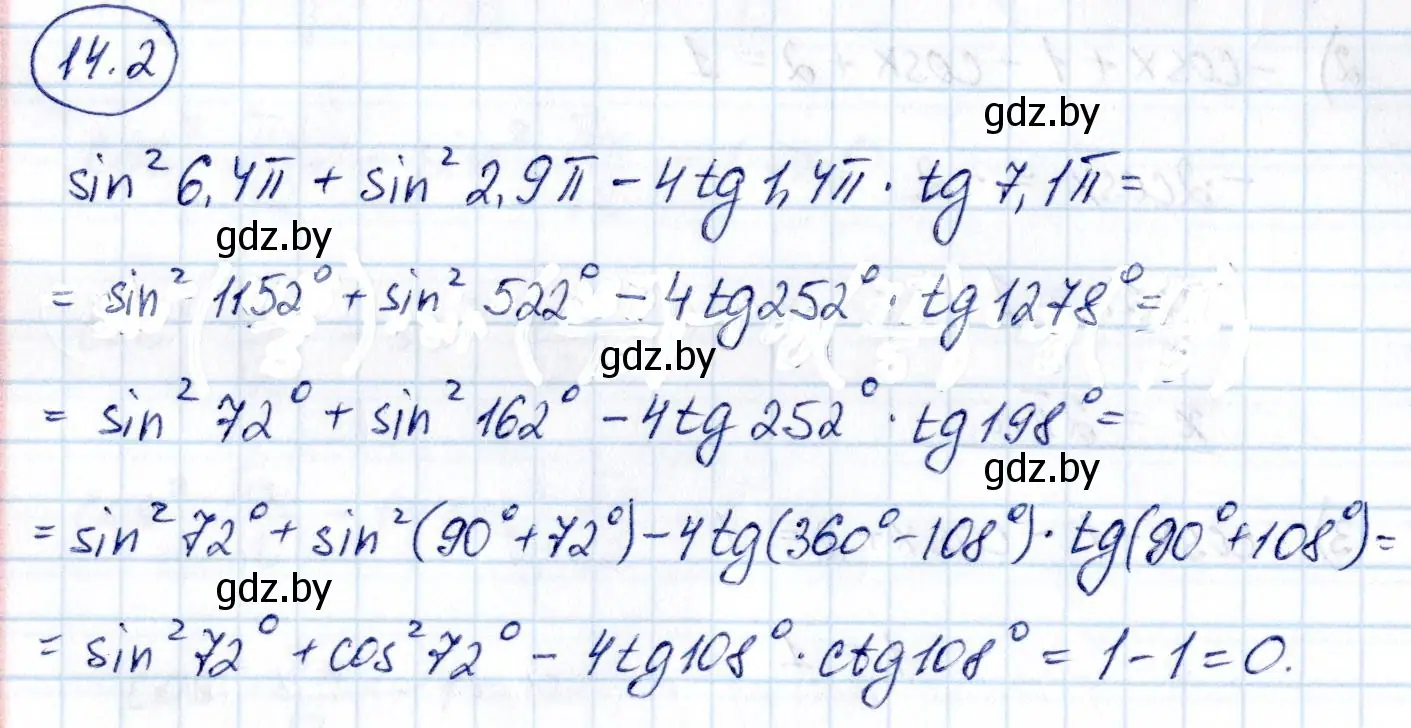 14.2
gdz.by
sin² 6,4π + sin² 2,9π − 4tg 1,4π · tg 7,1π =
gdz.by
= sin² 1152° + sin² 522° − 4tg252° · tg1278° =
gdz.by
= sin² 72° + sin² 162° − 4tg 252° · tg198° =
gdz.by
= sin² 72° + sin²(90°+72°) − 4tg(360°−108°) · tg(90°+108°) =
gdz.by
= sin² 72° + cos² 72° − 4tg108° · ctg108° = 1−1 = 0.